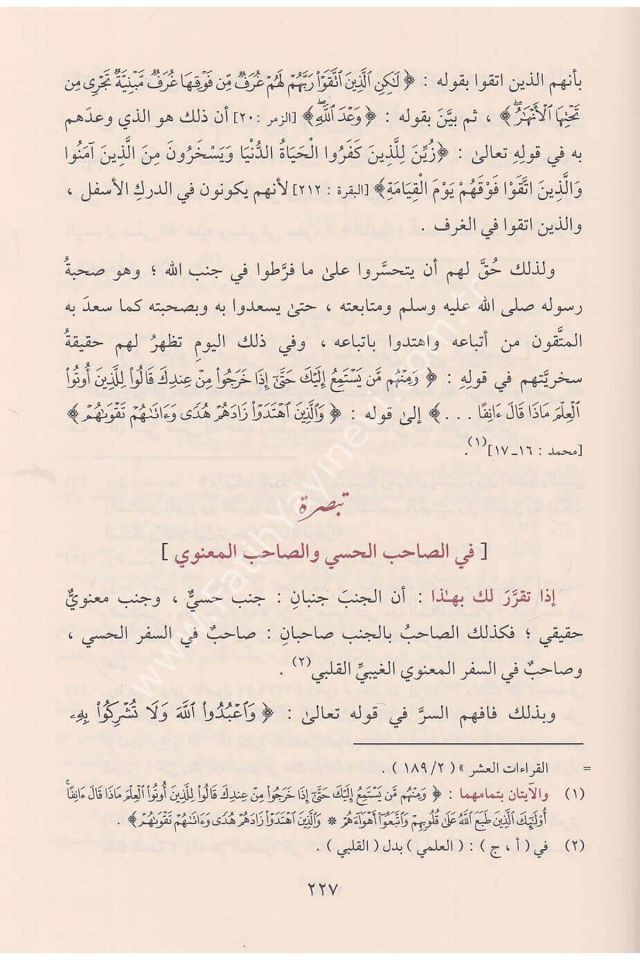 بأنهم الذين اتقوا بقوله : ﴿ لَٰكِنِ ٱلَّذِينَ ٱتَّقَوْا۟ رَبَّهُمْ لَهُمْ غُرَفٌ مِّن فَوْقِهَا غُرَفٌ مَّبْنِيَّةٌ تَجْرِى مِن
تَحْتِهَا ٱلْأَنْهَٰرُ ﴾ ، ثم بيَّنَ بقوله : ﴿ وَعْدَ ٱللَّهِ ﴾ [الزمر : ٢٠] أن ذلك هو الذي وعدَهم
به في قولِهِ تعالىٰ : ﴿زُيِّنَ لِلَّذِينَ كَفَرُوا الْحَيَاةُ الدُّنْيَا وَيَسْخَرُونَ مِنَ الَّذِينَ آمَنُوا
وَالَّذِينَ اتَّقَوْا فَوْقَهُمْ يَوْمَ الْقِيَامَةِ﴾ [البقرة : ٢١٢] لأنهم يكونون في الدركِ الأسفل ،
والذين اتقوا في الغرف .
ولذلك حُقَّ لهم أن يتحسَّروا علىٰ ما فرَّطوا في جنب الله ؛ وهو صحبةُ
رسوله صلى الله عليه وسلم ومتابعته ، حتىٰ يسعدوا به وبصحبته كما سعدَ به
المتَّقون من أتباعه واهتدوا باتباعه ، وفي ذلك اليوم تظهرُ لهم حقيقةُ
سخريَّتهم في قولِهِ : ﴿ وَمِنْهُم مَّن يَسْتَمِعُ إِلَيْكَ حَتَّىٰٓ إِذَا خَرَجُوا۟ مِنْ عِندِكَ قَالُوا۟ لِلَّذِينَ أُوتُوا۟
ٱلْعِلْمَ مَاذَا قَالَ ءَانِفًا . . . ﴾ إلىٰ قوله : ﴿ وَٱلَّذِينَ ٱهْتَدَوْا۟ زَادَهُمْ هُدًى وَءَاتَىٰهُمْ تَقْوَىٰهُمْ ﴾
[محمد : ١٦ـ١٧](١).
تبصرة
[ في الصاحب الحسي والصاحب المعنوي ]
إذا تقرَّرَ لك بهـٰذا : أن الجنبَ جنبانِ : جنب حسيٌّ ، وجنب معنويٌّ
حقيقي ؛ فكذلك الصاحبُ بالجنب صاحبان : صاحبٌ في السفر الحسي ،
وصاحبٌ في السفر المعنوي الغيبيِّ القلبي(٢) .
وبذلك فافهم السرَّ في قوله تعالىٰ : ﴿ وَٱعْبُدُوا۟ ٱللَّهَ وَلَا تُشْرِكُوا۟ بِهِۦ
= القراءات العشر » ( ١٨٩/٢ ) .
(١) والآيتان بتمامهما : ﴿ وَمِنْهُم مَّن يَسْتَمِعُ إِلَيْكَ حَتَّىٰٓ إِذَا خَرَجُوا۟ مِنْ عِندِكَ قَالُوا۟ لِلَّذِينَ أُوتُوا۟ ٱلْعِلْمَ مَاذَا قَالَ ءَانِفًا
أُو۟لَٰٓئِكَ ٱلَّذِينَ طَبَعَ ٱللَّهُ عَلَىٰ قُلُوبِهِمْ وَٱتَّبَعُوٓا۟ أَهْوَآءَهُمْ * وَٱلَّذِينَ ٱهْتَدَوْا۟ زَادَهُمْ هُدًى وَءَاتَىٰهُمْ تَقْوَىٰهُمْ ﴾ .
(٢) في ( أ ، ج ) : ( العلمي ) بدل ( القلبي ) .
٢٢٧